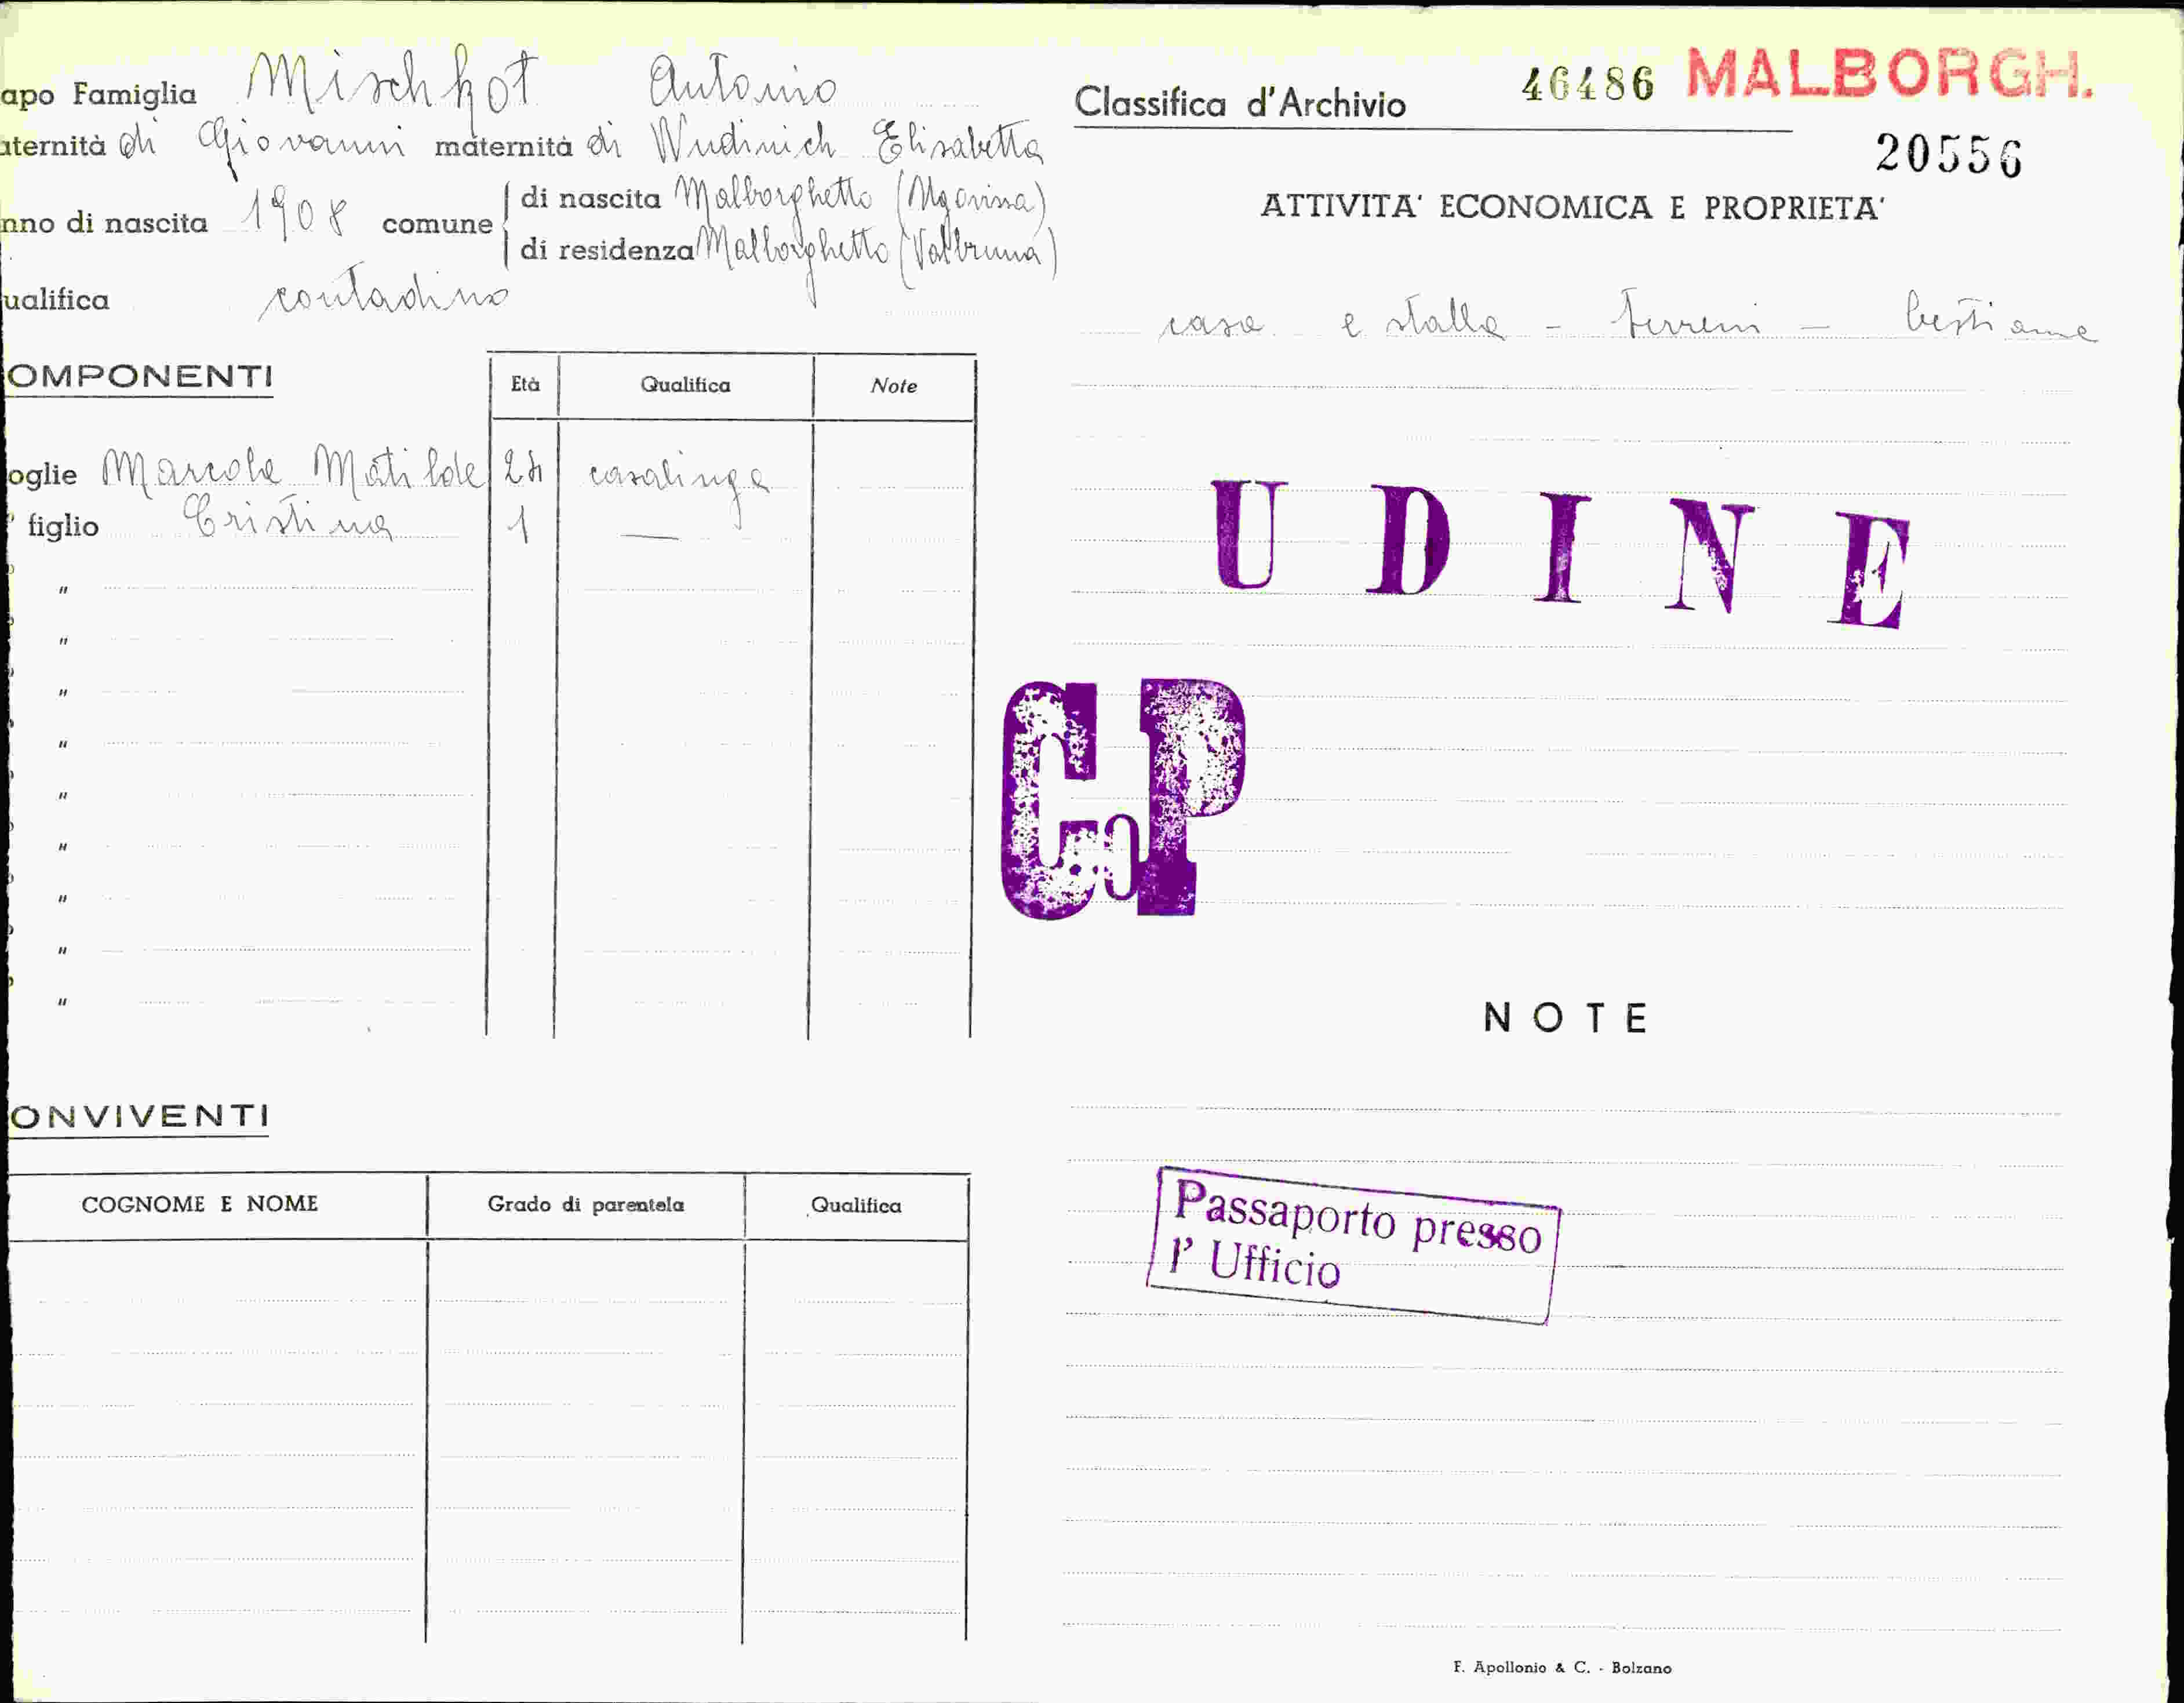 apo Famiglia Mischkot Antonio
aternità di Giovanni maternità di Wudinich Elisabetta
nno di nascita 1908 comune
di nascita Malborghetto
di residenza Malborghetto (Valbruna)
ualifica contadino
OMPONENTI
Età Qualifica Note
oglie Matilde casalinga
figlio Cristina 1 —
"
"
"
"
"
"
"
"
"
ONVIVENTI
COGNOME E NOME Grado di parentela Qualifica
Classifica d'Archivio 46486 MALBORGH.
20556
ATTIVITA' ECONOMICA E PROPRIETA'
casa e stalla - terreni - bestiame
UDINE
CoP
NOTE
Passaporto presso
l' Ufficio
F. Apollonio & C. - Bolzano